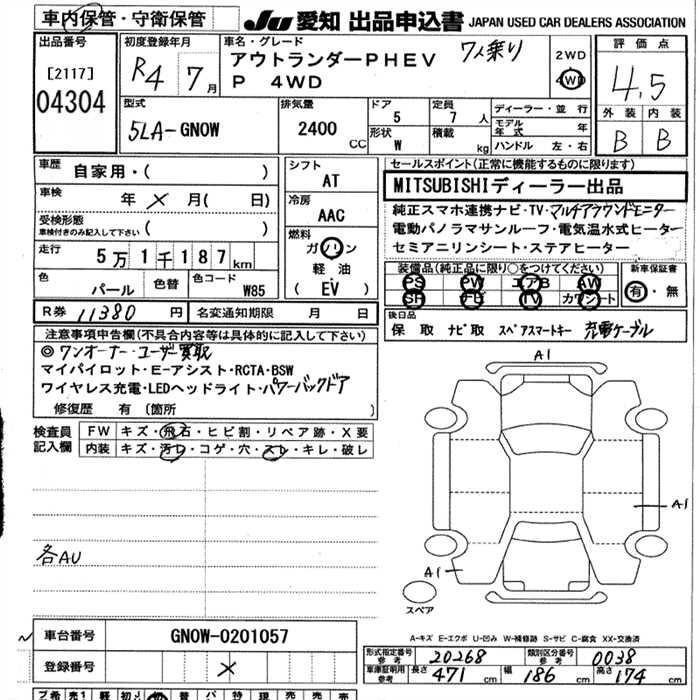 車内保管・守衛保管
JU 愛知 出品申込書 JAPAN USED CAR DEALERS ASSOCIATION
出品番号
[2117]
04304
初度登録年月
R4 7月
車名・グレード
アウトランダーPHEV 7人乗り
P 4WD
2WD
4WD
評価点
4.5
外装 内装
B B
型式
5LA-GN0W
排気量
2400 CC
ドア
5
定員
7 人
形状
W
積載
kg
ディーラー・並行
モデル年式 年
ハンドル 左・右
車歴
自家用・( )
車検
年 × 月( 日)
受検形態
車検付きのみ記入して下さい ( )
走行
5万1千187km
色
パール
色替
色コード
W85
シフト
AT
冷房
AAC
燃料
ガソリン
軽油
( EV )
セールスポイント(正常に機能するものに限ります)
MITSUBISHIディーラー出品
純正スマホ連携ナビ・TV・マルチアラウンドモニター
電動パノラマサンルーフ・電気温水式ヒーター
セミアニリンシート・ステアヒーター
装備品(純正品に限り○をつけてください)
PS PW エアB AW
SR ナビ TV カワシート
新車保証書
有・無
R券 11380 円
名変通知期限 月 日
後日品
保 取 ナビ取 スペアスマートキー 充電ケーブル
注意事項申告欄(不具合内容等は具体的に記入して下さい)
◎ワンオーナー・ユーザー買取
マイパイロット・E-アシスト・RCTA・BSW
ワイヤレス充電・LEDヘッドライト・パワーバックドア
修復歴 有 〔箇所 〕
検査員記入欄
FW キズ・飛石・ヒビ割・リペア跡・X要
内装 キズ・汚レ・コゲ・穴・スレ・キレ・破レ
各AU
A1
A1
A1
スペア
A-キズ E-エクボ U-凹み W-補修跡 S-サビ C-腐食 XX-交換済
車台番号
GN0W-0201057
登録番号
×
型式指定番号 参考 20268
類別区分番号 参考 0038
車庫証明用 参考 長さ 471 cm 幅 186 cm 高さ 174 cm